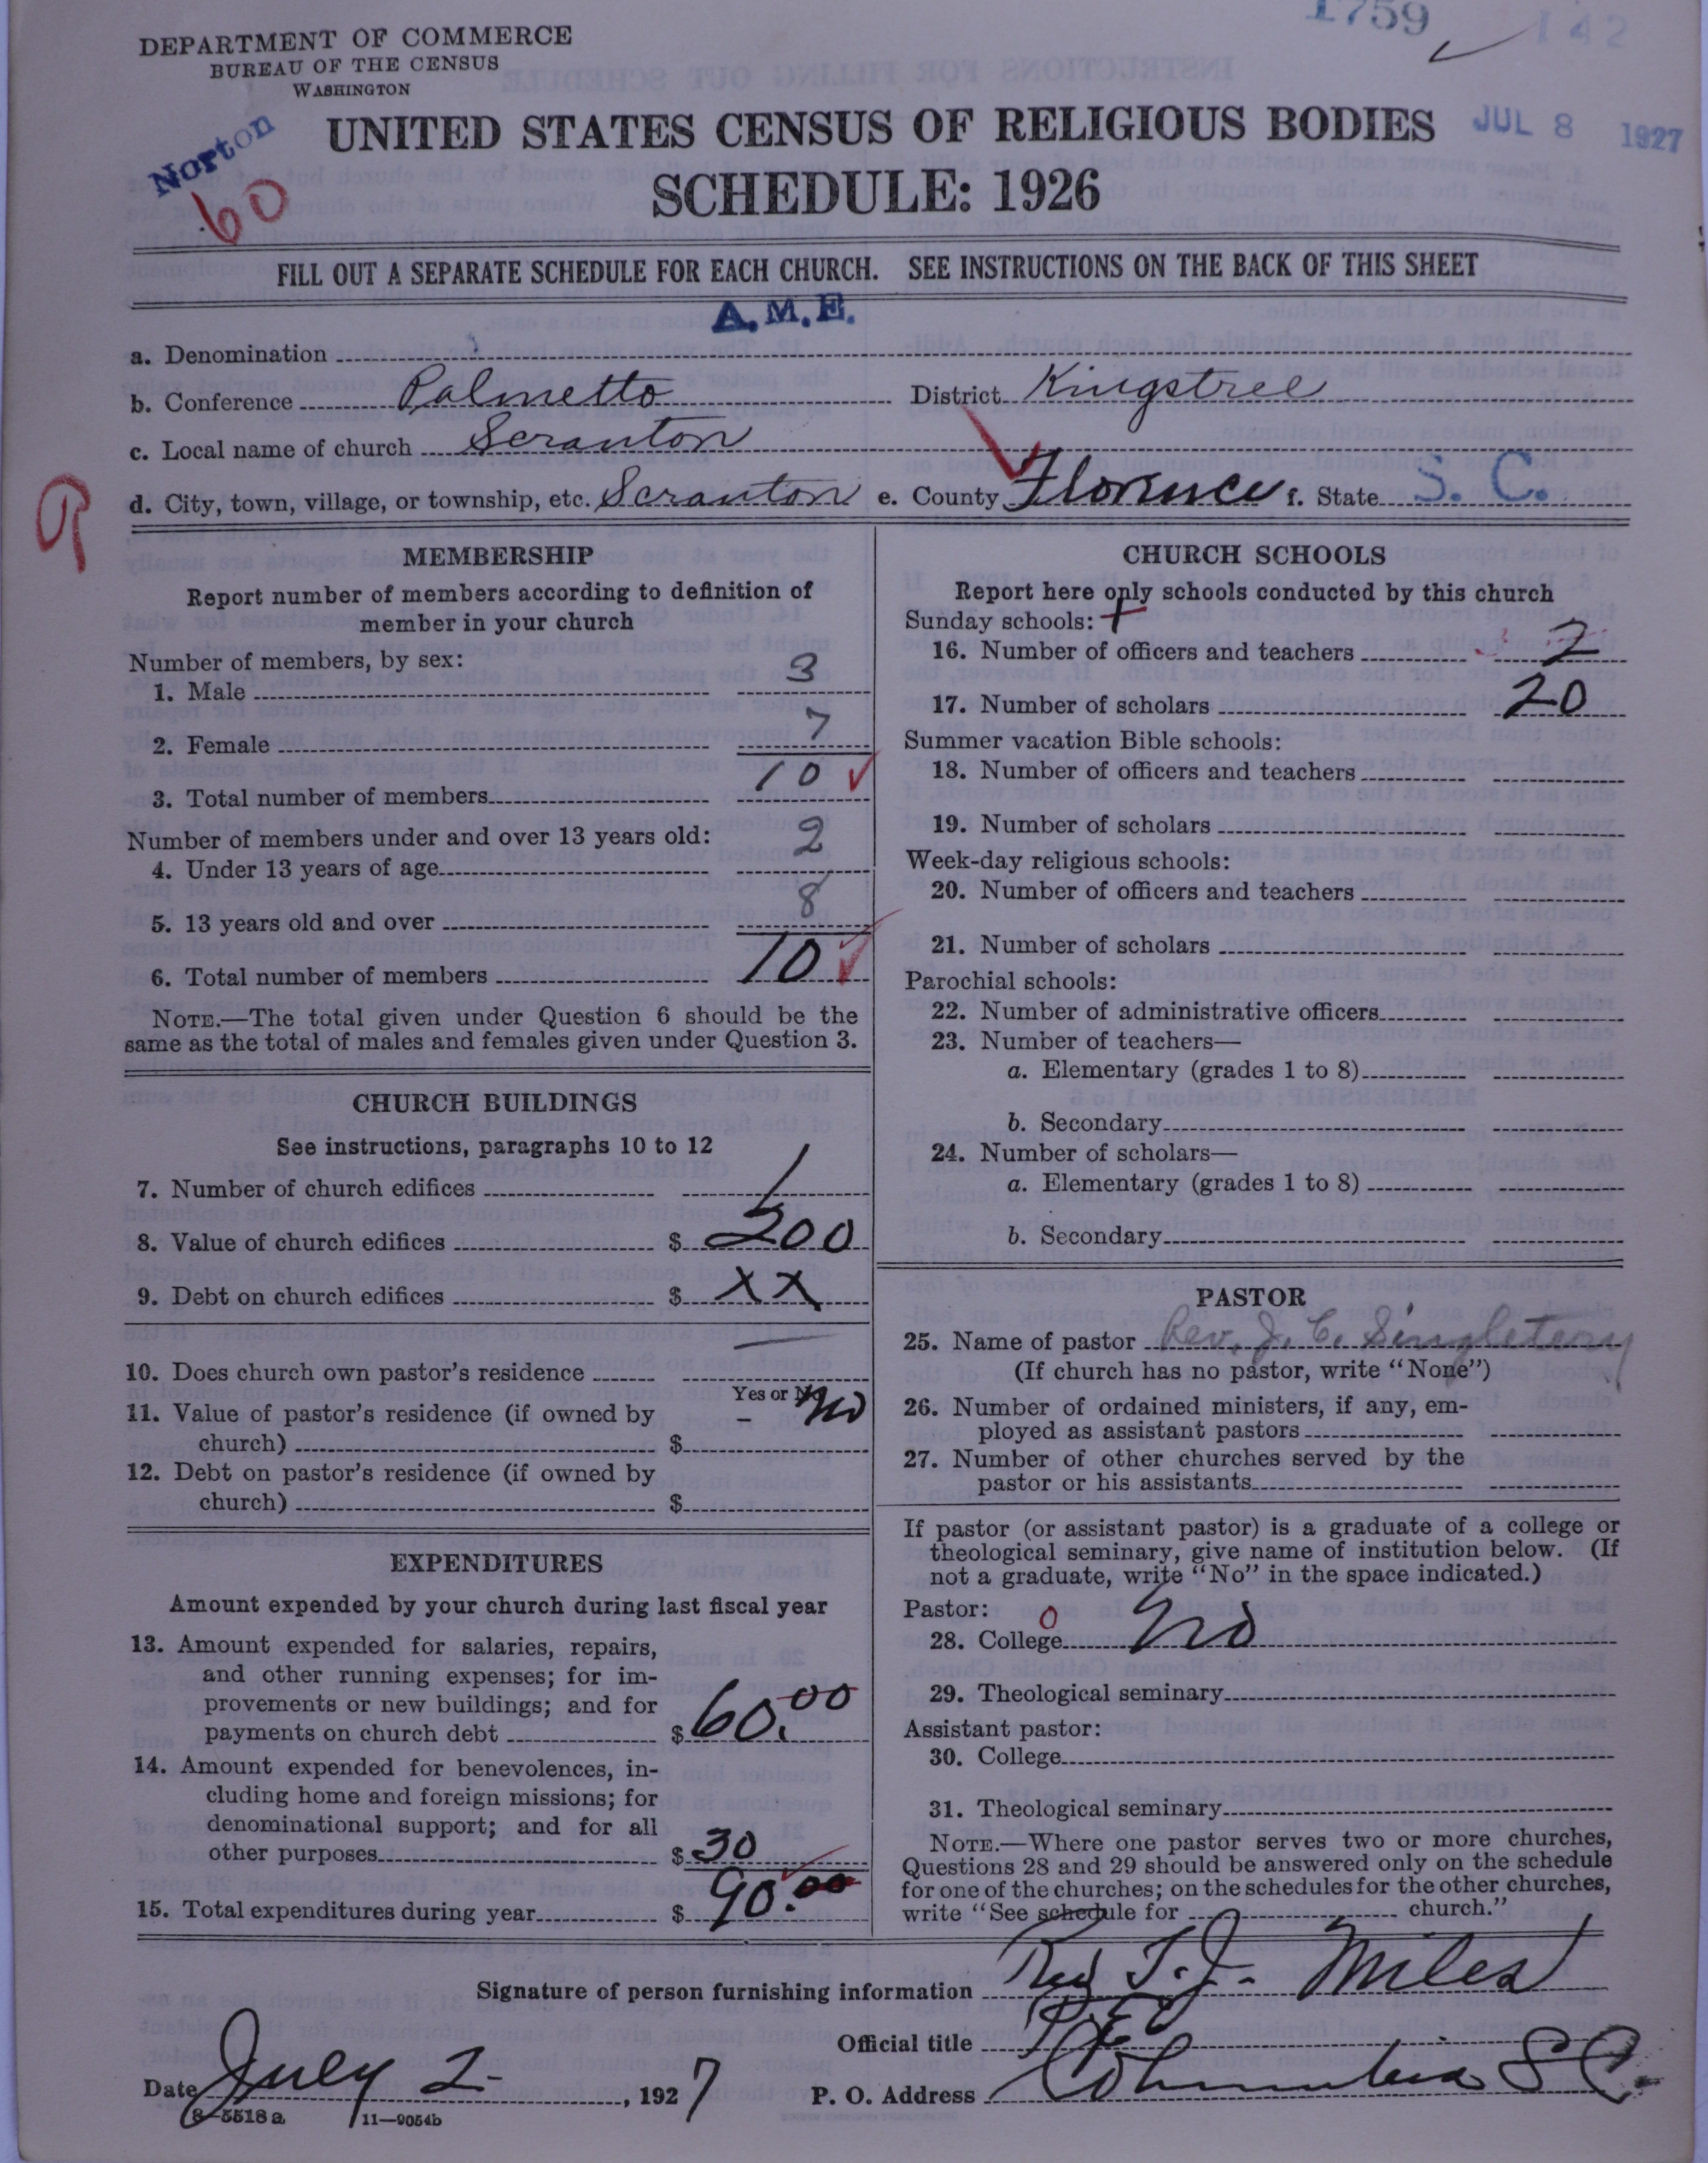 1759 142
DEPARTMENT OF COMMERCE
BUREAU OF THE CENSUS
WASHINGTON
Norton
60
UNITED STATES CENSUS OF RELIGIOUS BODIES
JUL 8 1927
SCHEDULE: 1926
FILL OUT A SEPARATE SCHEDULE FOR EACH CHURCH. SEE INSTRUCTIONS ON THE BACK OF THIS SHEET
A.M.E.
a. Denomination
b. Conference Palmetto District Kingstree
c. Local name of church Scranton
d. City, town, village, or township, etc. Scranton e. County Florence f. State S. C.
MEMBERSHIP
Report number of members according to definition of
member in your church
Number of members, by sex:
1. Male 3
2. Female 7
3. Total number of members 10
Number of members under and over 13 years old:
4. Under 13 years of age 2
5. 13 years old and over 8
6. Total number of members 10
NOTE.—The total given under Question 6 should be the
same as the total of males and females given under Question 3.
CHURCH BUILDINGS
See instructions, paragraphs 10 to 12
7. Number of church edifices 1
8. Value of church edifices $ 200
9. Debt on church edifices $ XX
10. Does church own pastor's residence
Yes or No
11. Value of pastor's residence (if owned by - No
church) $
12. Debt on pastor's residence (if owned by
church) $
EXPENDITURES
Amount expended by your church during last fiscal year
13. Amount expended for salaries, repairs,
and other running expenses; for im-
provements or new buildings; and for
payments on church debt $ 60.00
14. Amount expended for benevolences, in-
cluding home and foreign missions; for
denominational support; and for all
other purposes $ 30
15. Total expenditures during year $ 90.00
CHURCH SCHOOLS
Report here only schools conducted by this church
Sunday schools:
16. Number of officers and teachers 2
17. Number of scholars 20
Summer vacation Bible schools:
18. Number of officers and teachers
19. Number of scholars
Week-day religious schools:
20. Number of officers and teachers
21. Number of scholars
Parochial schools:
22. Number of administrative officers
23. Number of teachers—
a. Elementary (grades 1 to 8)
b. Secondary
24. Number of scholars—
a. Elementary (grades 1 to 8)
b. Secondary
PASTOR
25. Name of pastor Rev. J. C. Singletery
(If church has no pastor, write "None")
26. Number of ordained ministers, if any, em-
ployed as assistant pastors
27. Number of other churches served by the
pastor or his assistants
If pastor (or assistant pastor) is a graduate of a college or
theological seminary, give name of institution below. (If
not a graduate, write "No" in the space indicated.)
Pastor: 0
28. College No
29. Theological seminary
Assistant pastor:
30. College
31. Theological seminary
NOTE.—Where one pastor serves two or more churches,
Questions 28 and 29 should be answered only on the schedule
for one of the churches; on the schedules for the other churches,
write "See schedule for church."
Signature of person furnishing information Rev T. J. Miles
Official title P. E.
Date July 2-, 1927 P. O. Address Columbia S C.
8-5518 a 11—9054b